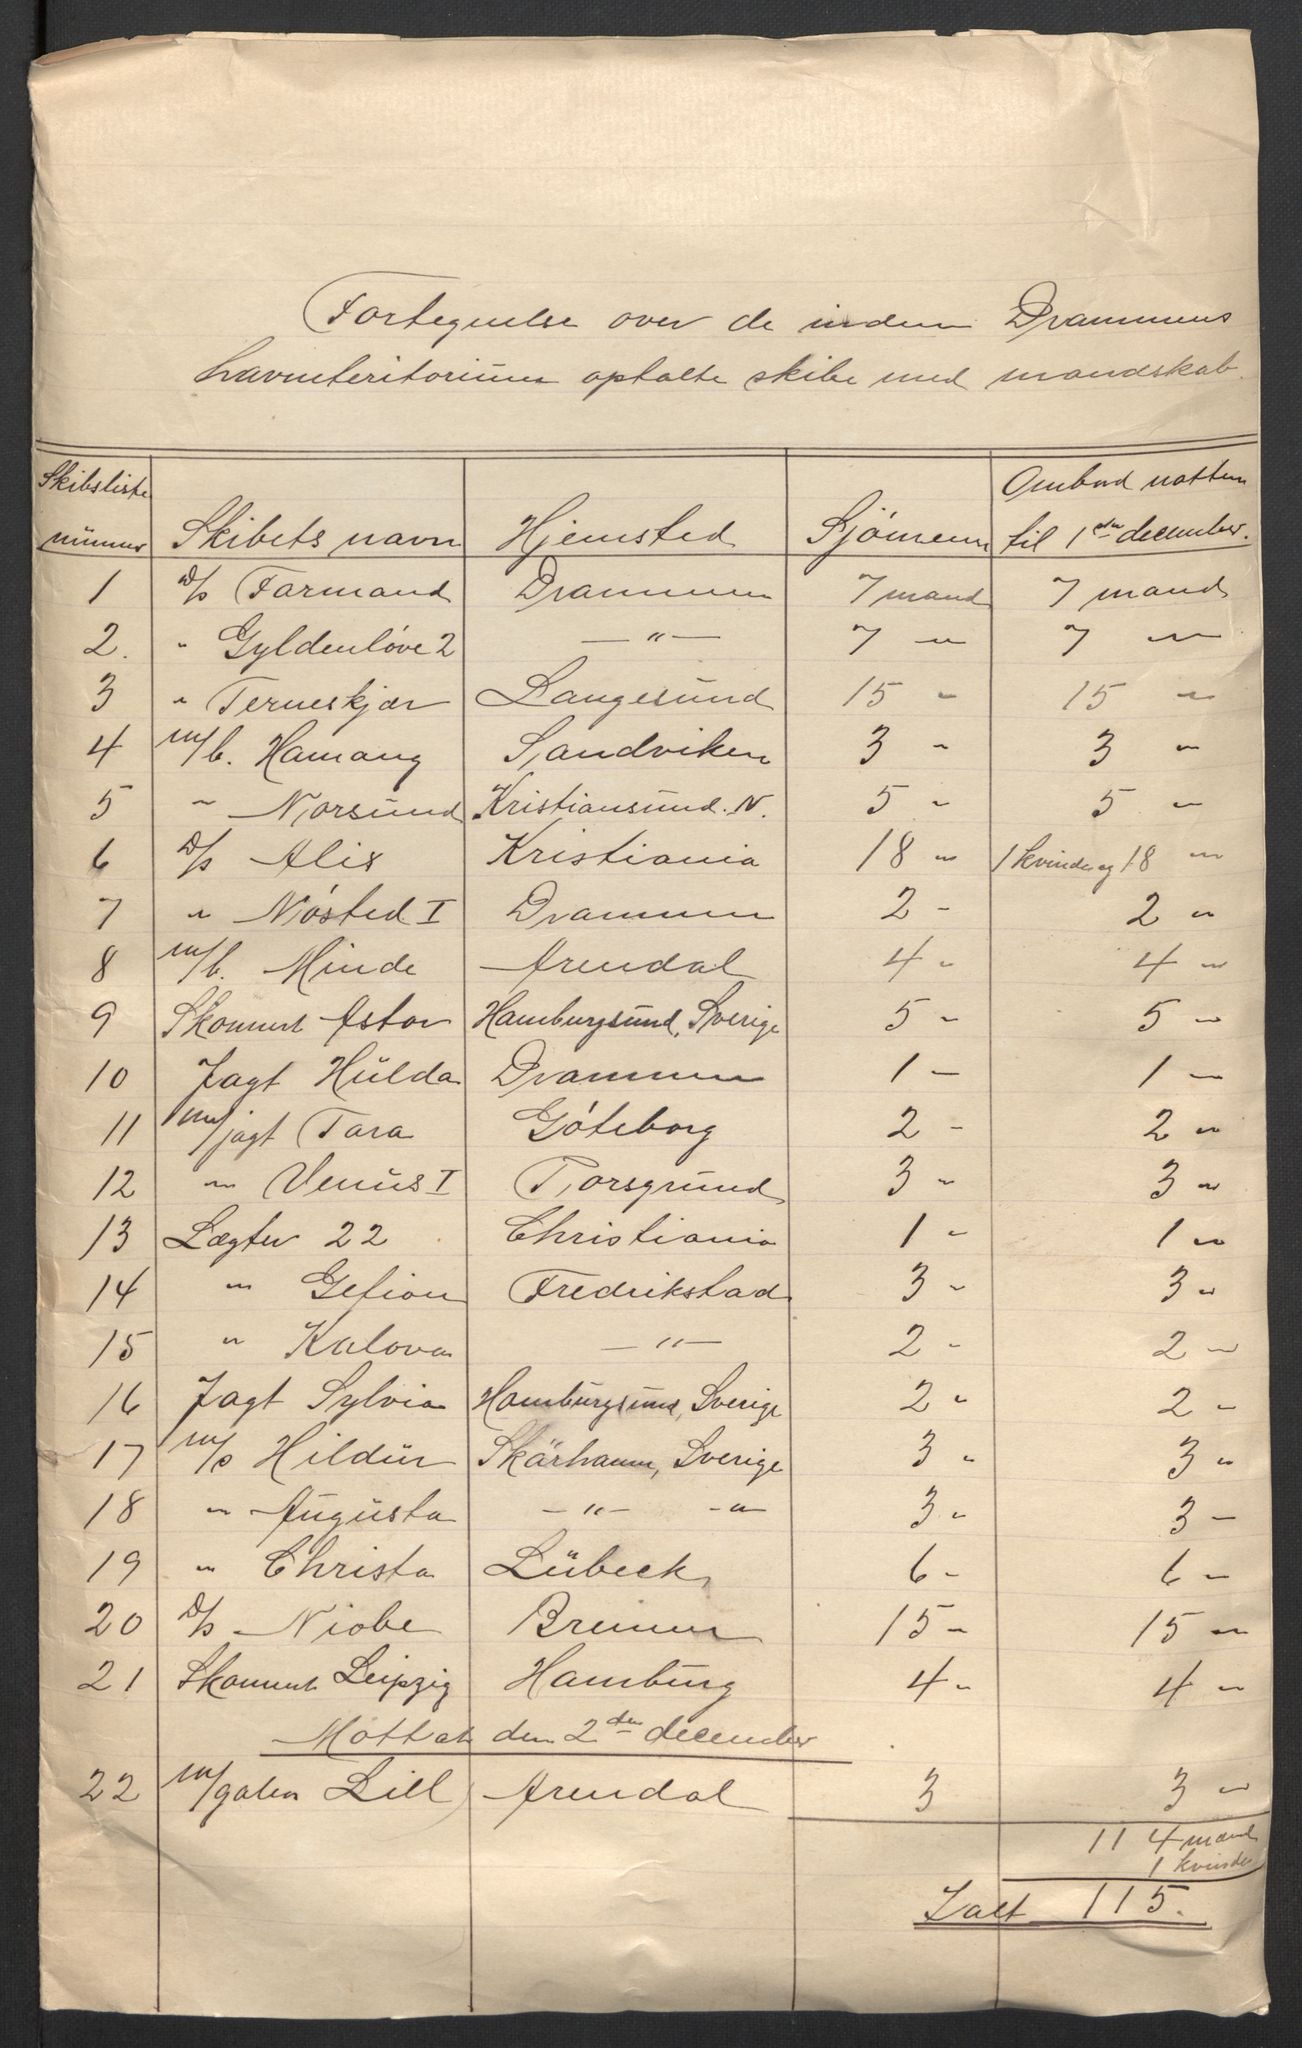 Fortegnelse over de inden Drammens
havneteritorium optalte skibe med mandskab.
Skibsliste nummer | Skibets navn | Hjemsted | Sjømenn | Ombord natten til 1ste december.
1 D/s Farmand Drammen 7 mand 7 mand
2. " Gyldenløve 2 — " — 7 " 7 "
3 " Terneskjær Langesund 15 " 15 "
4 m/b. Hamang Sandviken 3 " 3 "
5 " Norsund Kristiansund. N. 5 " 5 "
6 D/s Alis Kristiania 18 " 1 kvinde og 18 "
7 " Nøsted I Drammen 2 " 2 "
8 m/b. Minde Arendal 4 " 4 "
9 Skonnert Astor Hamburgsund, Sverige 5 " 5 "
10 Jagt Hulda Drammen 1 " 1 "
11 m/jagt Tara Göteborg 2 " 2 "
12 " Venus I Porsgrund 3 " 3 "
13 Lægter 22 Christiania 1 " 1 "
14 " Gefion Fredrikstad 3 " 3 "
15 " Kalova — " — 2 " 2 "
16 Jagt Sylvia Hamburgsund, Sverige 2 " 2 "
17 m/s Hildur Skärhamn, Sverige 3 " 3 "
18 " Augusta — " — — " 3 " 3 "
19 " Christa Lübeck 6 " 6 "
20 D/s Niobe Bremen 15 " 15 "
21 Skonnert Leipzig Hamburg 4 " 4 "
Mottat den 2den december
22 m/galea Lill Arendal 3 3 "
114 mænd
1 kvinde
Ialt 115.